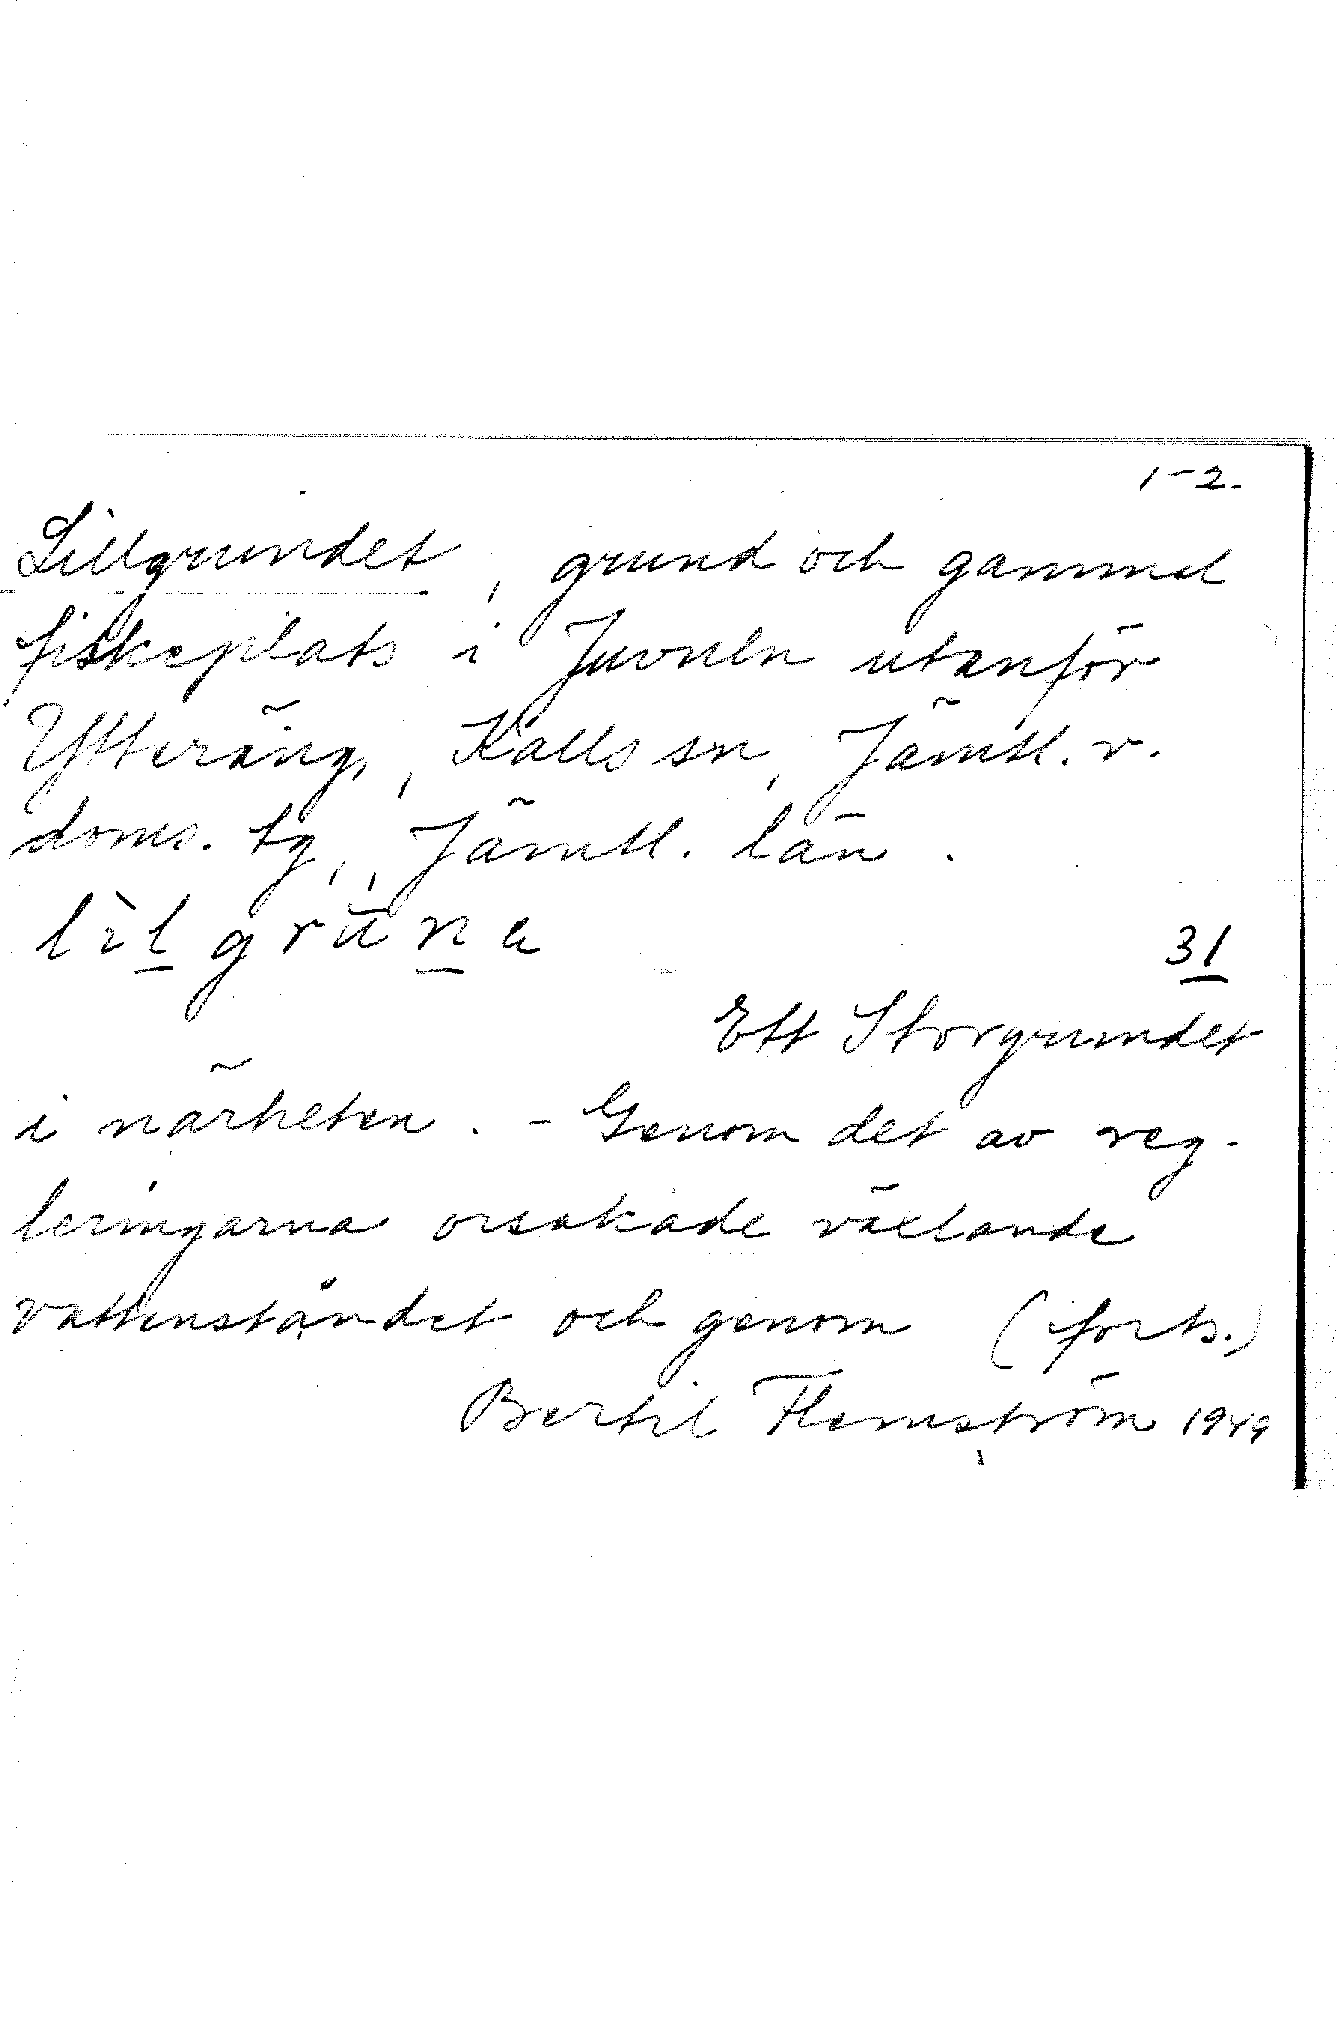 1-2.
Lillgrundet, grund och gammal
fiskeplats i Juvuln utanför
Ytteräng, Kalls sn, Jämtl. v.
doms. tg, Jämtl. län.
lìlgrùna
31
Ett Storgrundet
i närheten. - Genom det av reg-
leringarna orsakade växlande
vattenståndet och genom (forts.)
Bertil Flemström 1949